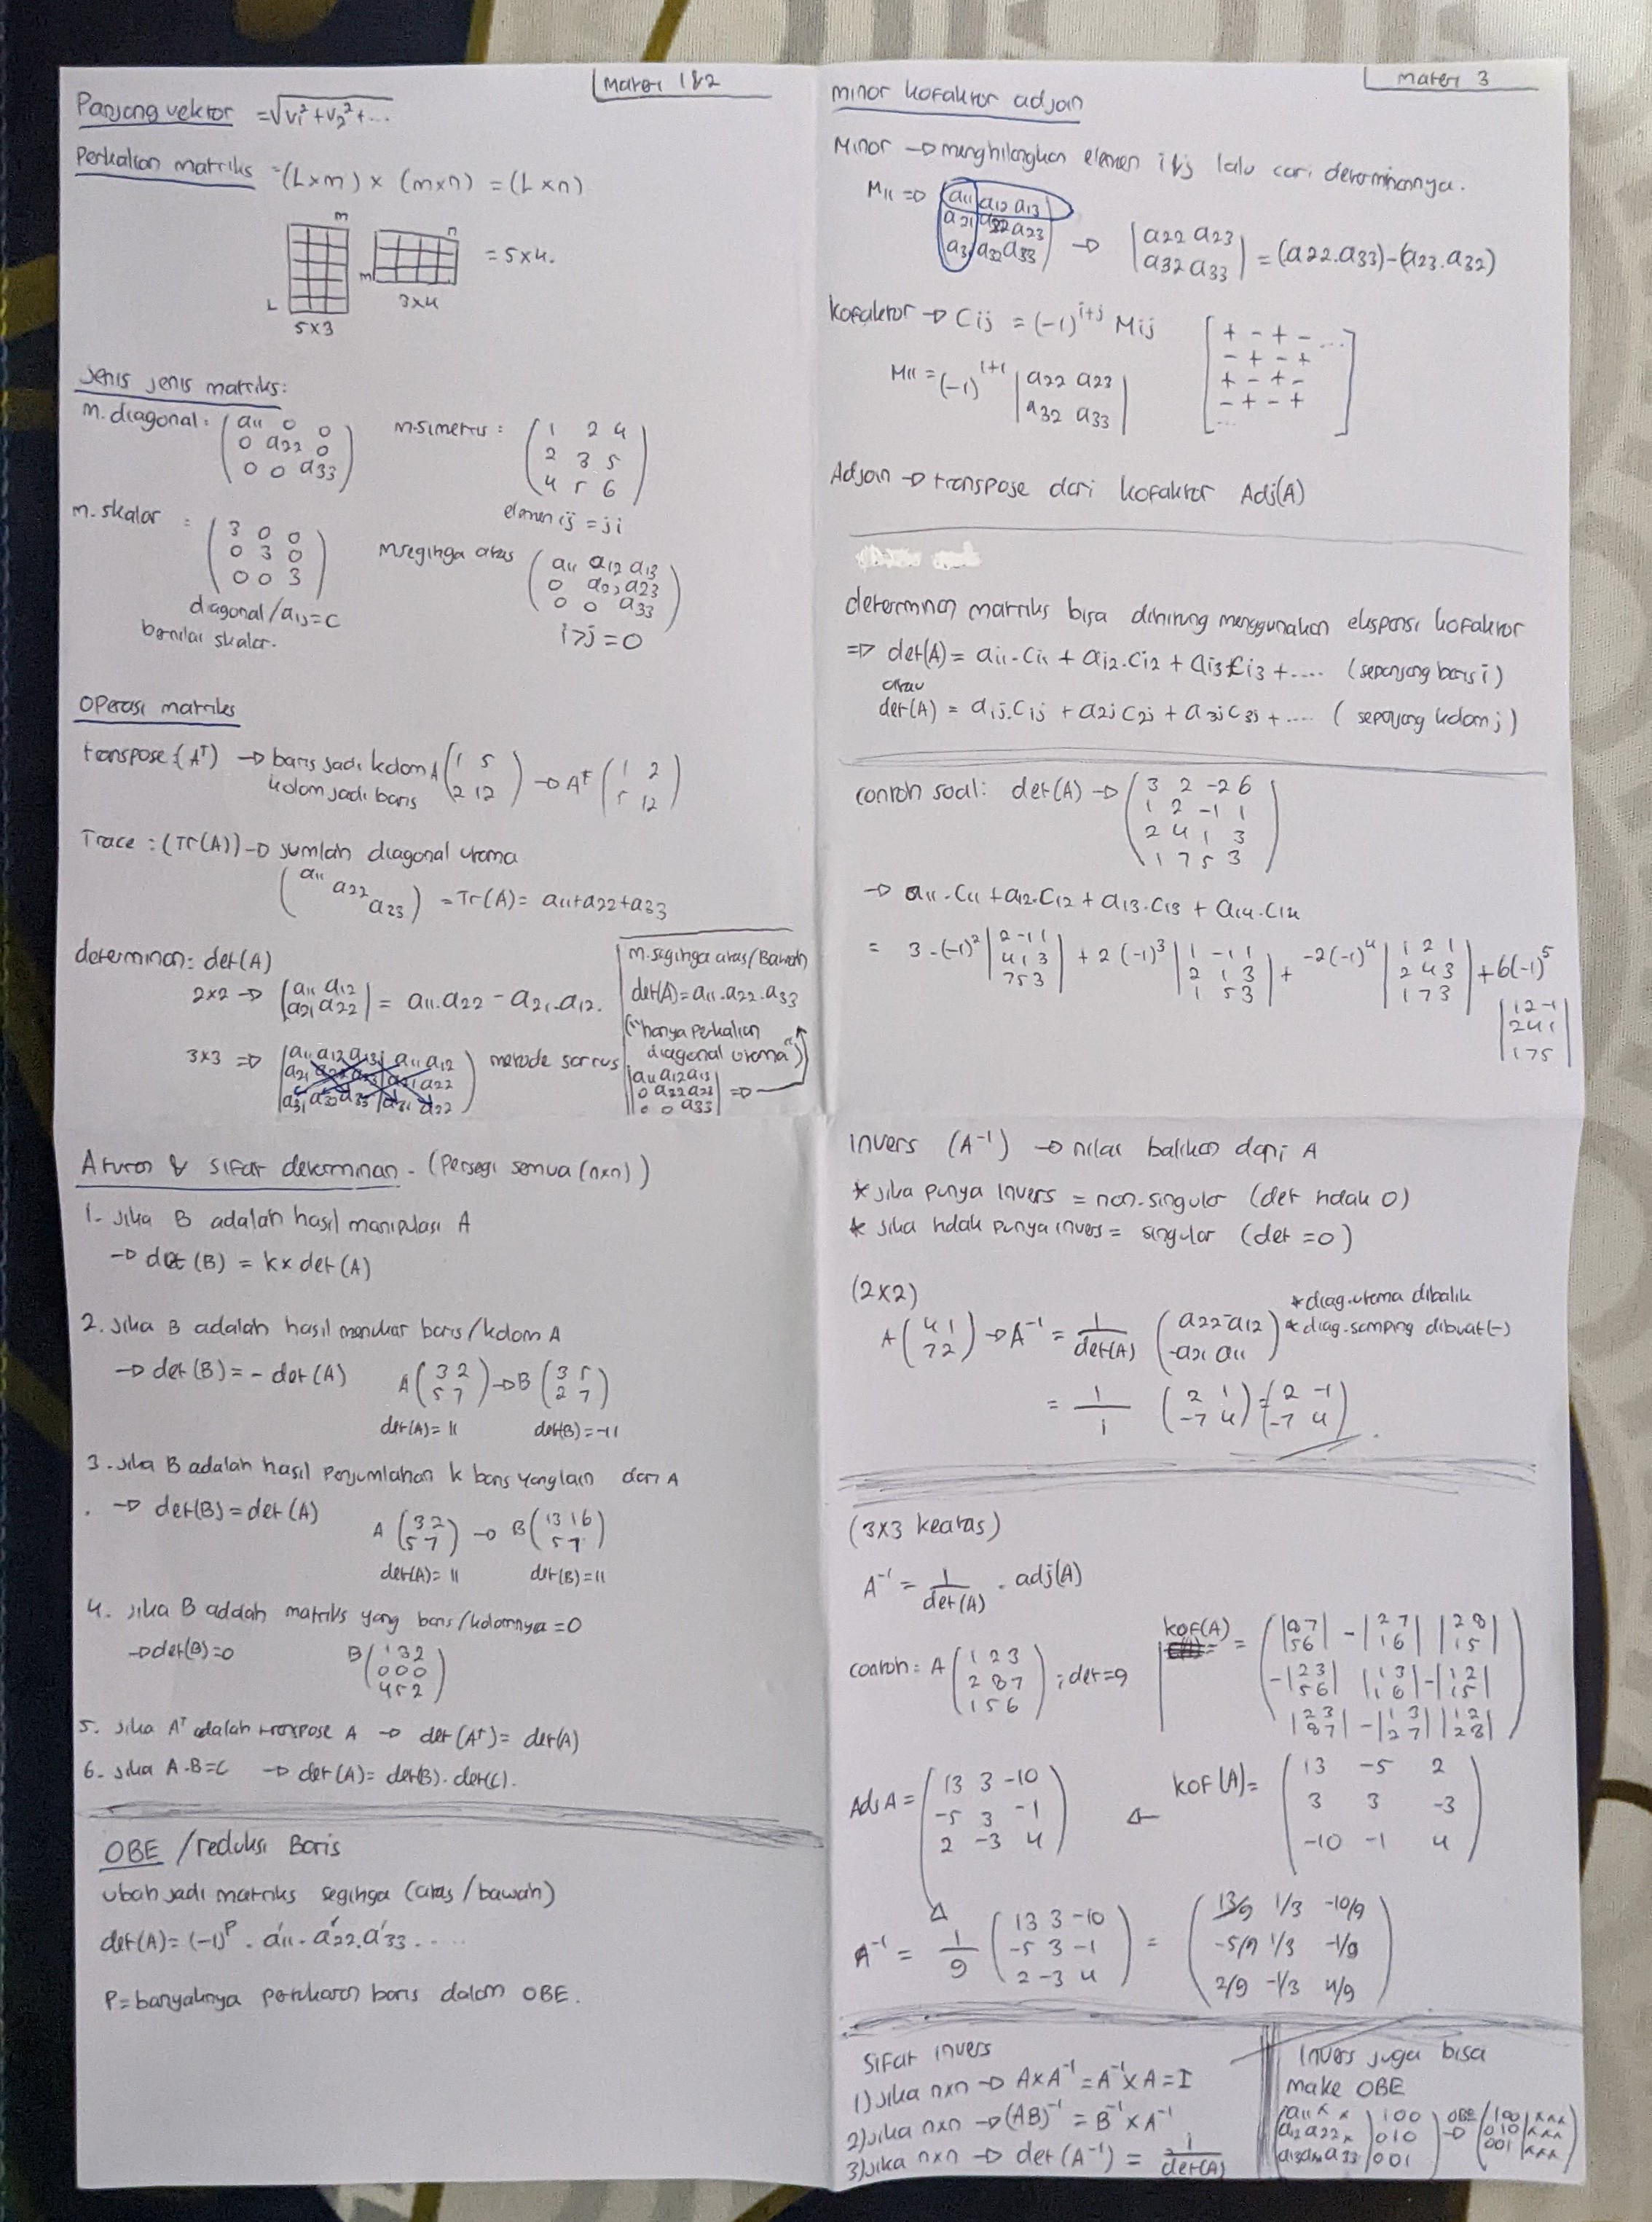 Materi 1&2
Panjang vektor = √v₁² + v₂² + ...
Perkalian matriks = (L×m) × (m×n) = (L×n)
m n
= 5×4.
L m
5×3 3×4
Jenis jenis matriks:
m. diagonal: (a11 0 0
0 a22 0
0 0 a33)
m. simetris: (1 2 4
2 3 5
4 5 6)
elemen ij = ji
m. skalar : (3 0 0
0 3 0
0 0 3)
diagonal / aij = C
bernilai skalar.
m segitiga atas (a11 a12 a13
0 a22 a23
0 0 a33)
i>j = 0
Operasi matriks
transpose: (Aᵀ) → baris jadi kolom A (1 5 → Aᵀ (1 2
kolom jadi baris 2 12) 5 12)
Trace : (Tr(A)) → jumlah diagonal utama
(a11
a22 = Tr(A) = a11+a22+a33
a23)
determinan: det(A)
2×2 → (a11 a12
a21 a22| = a11.a22 - a21.a12.
3×3 ⇒ |a11 a12 a13| a11 a12
a21 a22 a23| a21 a22
a31 a32 a33| a31 a22) metode sarrus
m. segitiga atas/Bawah
det(A) = a11.a22.a33
("hanya perkalian
diagonal utama")
|a11 a12 a13
0 a22 a23
0 0 a33| ⇒
Aturan & sifat determinan - (persegi semua (n×n))
1. jika B adalah hasil manipulasi A
→ det (B) = k× det(A)
2. jika B adalah hasil menukar baris/kolom A
→ det(B) = - det(A) A (3 2 → B (3 5
5 7) 2 7)
det(A) = 11 det(B) = -11
3. jika B adalah hasil penjumlahan k baris yang lain dari A
. → det(B) = det(A) A (3 2 → B (13 16
5 7) 5 7)
det(A) = 11 det(B) = 11
4. jika B adalah matriks yang baris/kolomnya = 0
→ det(B) = 0 B (1 3 2
0 0 0
4 5 2)
5. jika Aᵀ adalah transpose A → det(Aᵀ) = det(A)
6. jika A.B=C → det(A) = det(B). det(C).
OBE / reduksi Baris
ubah jadi matriks segitiga (atas / bawah)
det(A) = (-1)ᴾ . a'11 . a'22 . a'33 . ....
P = banyaknya pertukaran baris dalam OBE.
Materi 3
minor kofaktor adjoin
Minor → menghilangkan elemen i&j lalu cari determinannya.
M11 ⇒ a11 a12 a13
a21 a22 a23
a31 a32 a33| → |a22 a23
a32 a33| = (a22.a33)-(a23.a32)
kofaktor → Cij = (-1)ⁱ⁺ʲ Mij
M11 = (-1)¹⁺¹ |a22 a23
a32 a33|
[+ - + - ...
- + - +
+ - + -
- + - +
...]
Adjoin → transpose dari kofaktor Adj(A)
determinan matriks bisa dihitung menggunakan ekspansi kofaktor
⇒ det(A) = ai1.Ci1 + ai2.Ci2 + ai3Ci3 + .... (sepanjang baris i)
atau
det(A) = a1j.C1j + a2j C2j + a3j C3j + .... (sepanjang kolom j)
contoh soal: det(A) → (3 2 -2 6
1 2 -1 1
2 4 1 3
1 7 5 3)
→ a11.C11 + a12.C12 + a13.C13 + a14.C14
= 3.(-1)² |2 -1 1
4 1 3
7 5 3| + 2(-1)³ |1 -1 1
2 1 3
1 5 3| + -2(-1)⁴ |1 2 1
2 4 3
1 7 3| + 6(-1)⁵
|1 2 -1
2 4 1
1 7 5|
Invers (A⁻¹) → nilai balikan dari A
* jika punya invers = non-singular (det tidak 0)
* jika tidak punya invers = singular (det = 0)
(2×2)
A (4 1
7 2) → A⁻¹ = 1/det(A) (a22 -a12
-a21 a11)
* diag. utama dibalik
* diag. samping dibuat (-)
= 1/1 (2 1
-7 4) = (2 -1
-7 4).
(3×3 keatas)
A⁻¹ = 1/det(A) . adj(A)
contoh: A (1 2 3
2 8 7
1 5 6) ; det=9
kof(A) = (|8 7
5 6| -|2 7
1 6| |2 8
1 5|
-|2 3
5 6| |1 3
1 6| -|1 2
1 5|
|2 3
8 7| -|1 3
2 7| |1 2
2 8|)
Adj A = (13 3 -10
-5 3 -1
2 -3 4)
kof(A) = (13 -5 2
3 3 -3
-10 -1 4)
A⁻¹ = 1/9 (13 3 -10
-5 3 -1
2 -3 4) = (13/9 1/3 -10/9
-5/9 1/3 -1/9
2/9 -1/3 4/9)
Sifat invers
1) jika n×n → A×A⁻¹ = A⁻¹×A = I
2) jika n×n → (AB)⁻¹ = B⁻¹ × A⁻¹
3) jika n×n → det (A⁻¹) = 1/det(A)
Invers juga bisa
make OBE
(a11 x x | 1 0 0
a12 a22 x | 0 1 0
a13 a33 | 0 0 1) OBE → (1 0 0 | x x x
0 1 0 | x x x
0 0 1 | x x x)